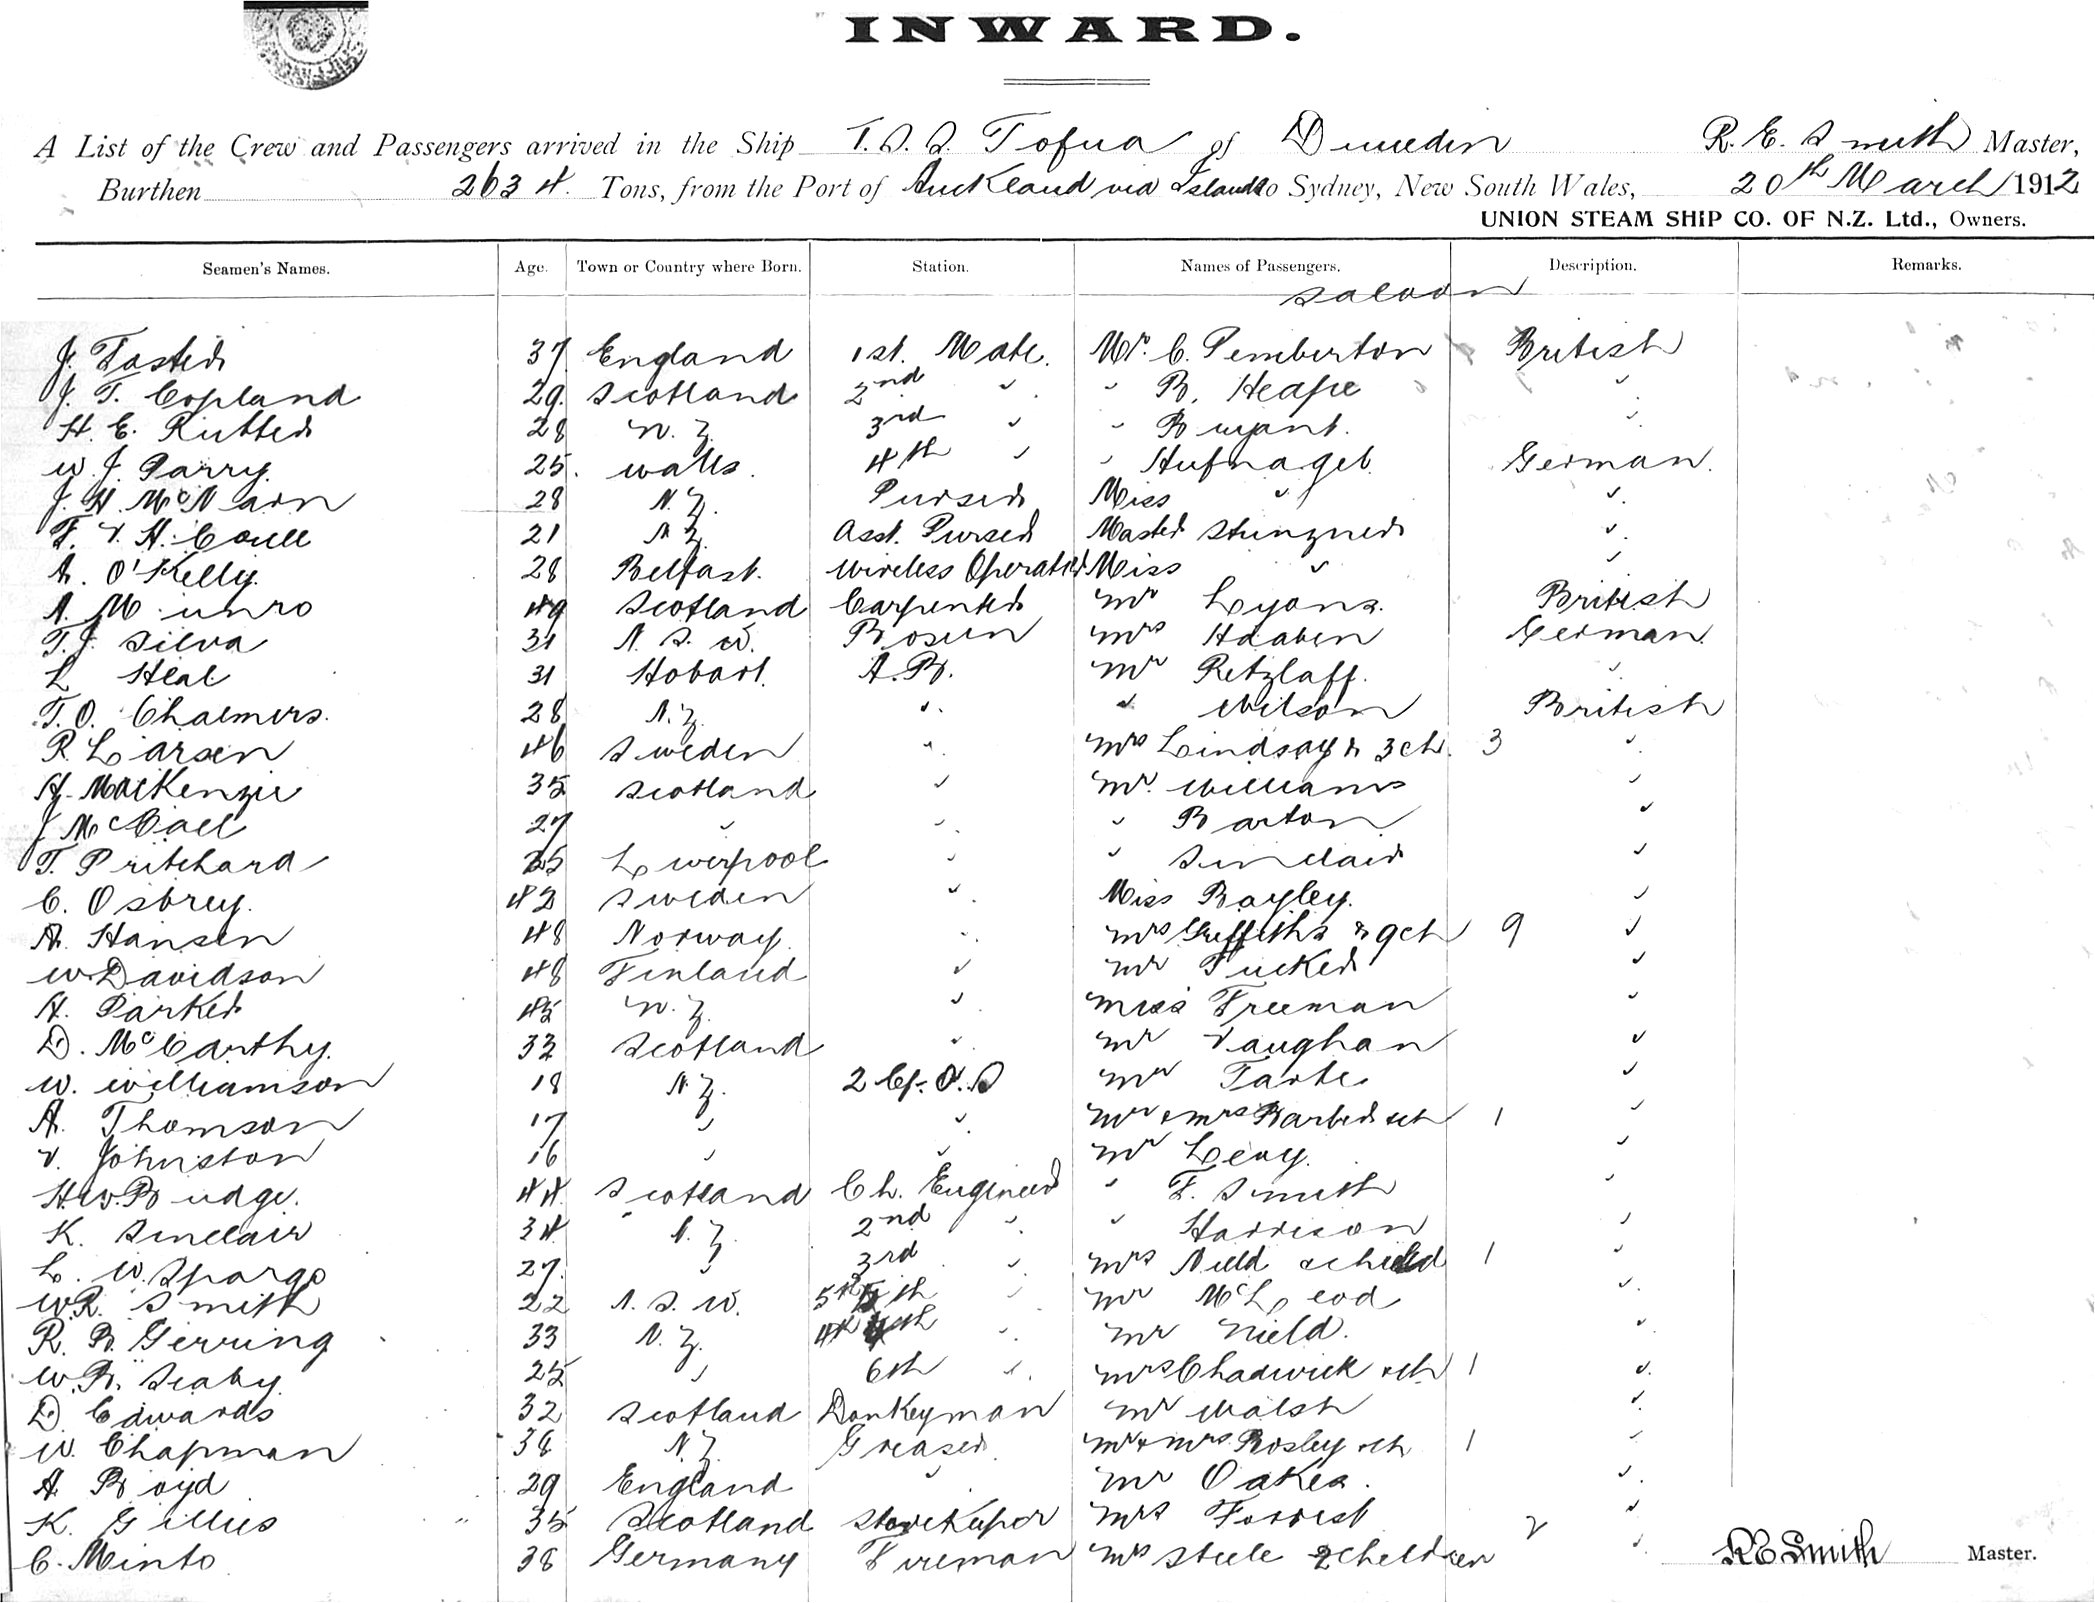 INWARD.
A List of the Crew and Passengers arrived in the Ship T.S.S. Tofua of Dunedin R. E. Smith Master,
Burthen 2634. Tons, from the Port of Auckland via Islands to Sydney, New South Wales, 20th March 1912
UNION STEAM SHIP CO. OF N.Z. Ltd., Owners.
Seamen's Names. Age. Town or Country where Born. Station. Names of Passengers. Description. Remarks.
Saloon
J. Foster 37 England 1st. Mate. Mr. C. Pemberton British
J. T. Copland 29. Scotland 2nd " " B. Heape "
H. E. Rutter 28 N. Z. 3rd " " Bryant. "
W. J. Parry. 25. Wales. 4th " " Hufnagel. German.
J. H. McNarn 28 N. Z. Purser Miss " "
F. V. H. Coull 21 N Z. Asst. Purser Master Stunzner "
A. O'Kelly. 28 Belfast. Wireless Operator Miss " "
A. Munro 49 Scotland Carpenter Mr Lyons. British
T. J. Silva 31 N. S. W. Bosun Mrs Haaben German.
L Heal 31 Hobart. A.B. Mr Retzlaff. "
T. O. Chalmers. 28 N. Z. " " Wilson British
R. Larsen 46 Sweden " Mrs Lindsay & 3 ch. 3 "
H. MacKenzie 35 Scotland " Mr. Williams "
J McCall 27 " " " Barton "
T. Pritchard 25 Liverpool " " Sinclair "
C. Osbrey. 42 Sweden " Miss Bayley. "
A. Hansen 48 Norway. " Mrs Griffiths & 9 ch 9 "
W Davidson 48 Finland " Mr Tucker "
A. Parker 45 N. Z. " Miss Freeman "
D. McCarthy. 33 Scotland " Mr Vaughan "
W. Williamson 18 N. Z. 2 Cl. O. S Mr Tarte "
A. Thomson 17 " " Mr & Mrs Barber & ch 1 "
V. Johnston 16 " " Mr Levy. "
H. W. Budge. 44 Scotland Ch. Engineer " F. Smith "
K. Sinclair 34 N. Z. 2nd " " Harrison "
L. W. Spargo 27. " 3rd " Mrs Nield & child 1 "
W. R. Smith 22 N. S. W. 5th " Mr McLeod "
R. B. Gerring 33 N. Z. 4th " Mr Nield. "
W. B. Seaby 25 " 6th " Mrs Chadwick & ch 1 "
D. Edwards 32 Scotland Donkeyman Mr Walsh "
W. Chapman 38 N. Z. Greaser. Mr & Mrs Bosley & ch 1 "
A. Boyd 29 England " Mr Oakes. "
K. Gillies 35 Scotland Storekeeper Mrs Forrest "
C. Minto 38 Germany Fireman Mrs Steele 2 children 2 " R E Smith Master.